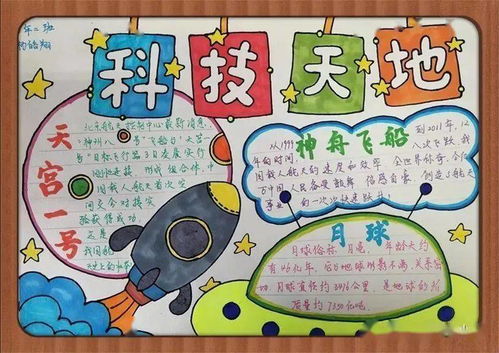 年二班
科技天地
天宫一号
北京航天控制中心最新消息,
"神州八号"飞船与"天宫一
号"目标飞行器3日凌晨实行
刚性连接,形成组合体,中
国载人航天首次空
间交会对接实
验获得成功,
这是
我国航
神舟飞船
从1999
年的时间,
到2011年,12
八次飞跃,我
国载人航天的速度和效率,全世界惊奇,令
万中国人民备受鼓舞,倍感自豪,创造了航天
事业的一次次快速跃升
月球
月球俗称,月亮,年龄大约
有46亿年,它与地球形影不离,关系密
切,月球直径约3476公里,是地球的
质量约7350亿吨。